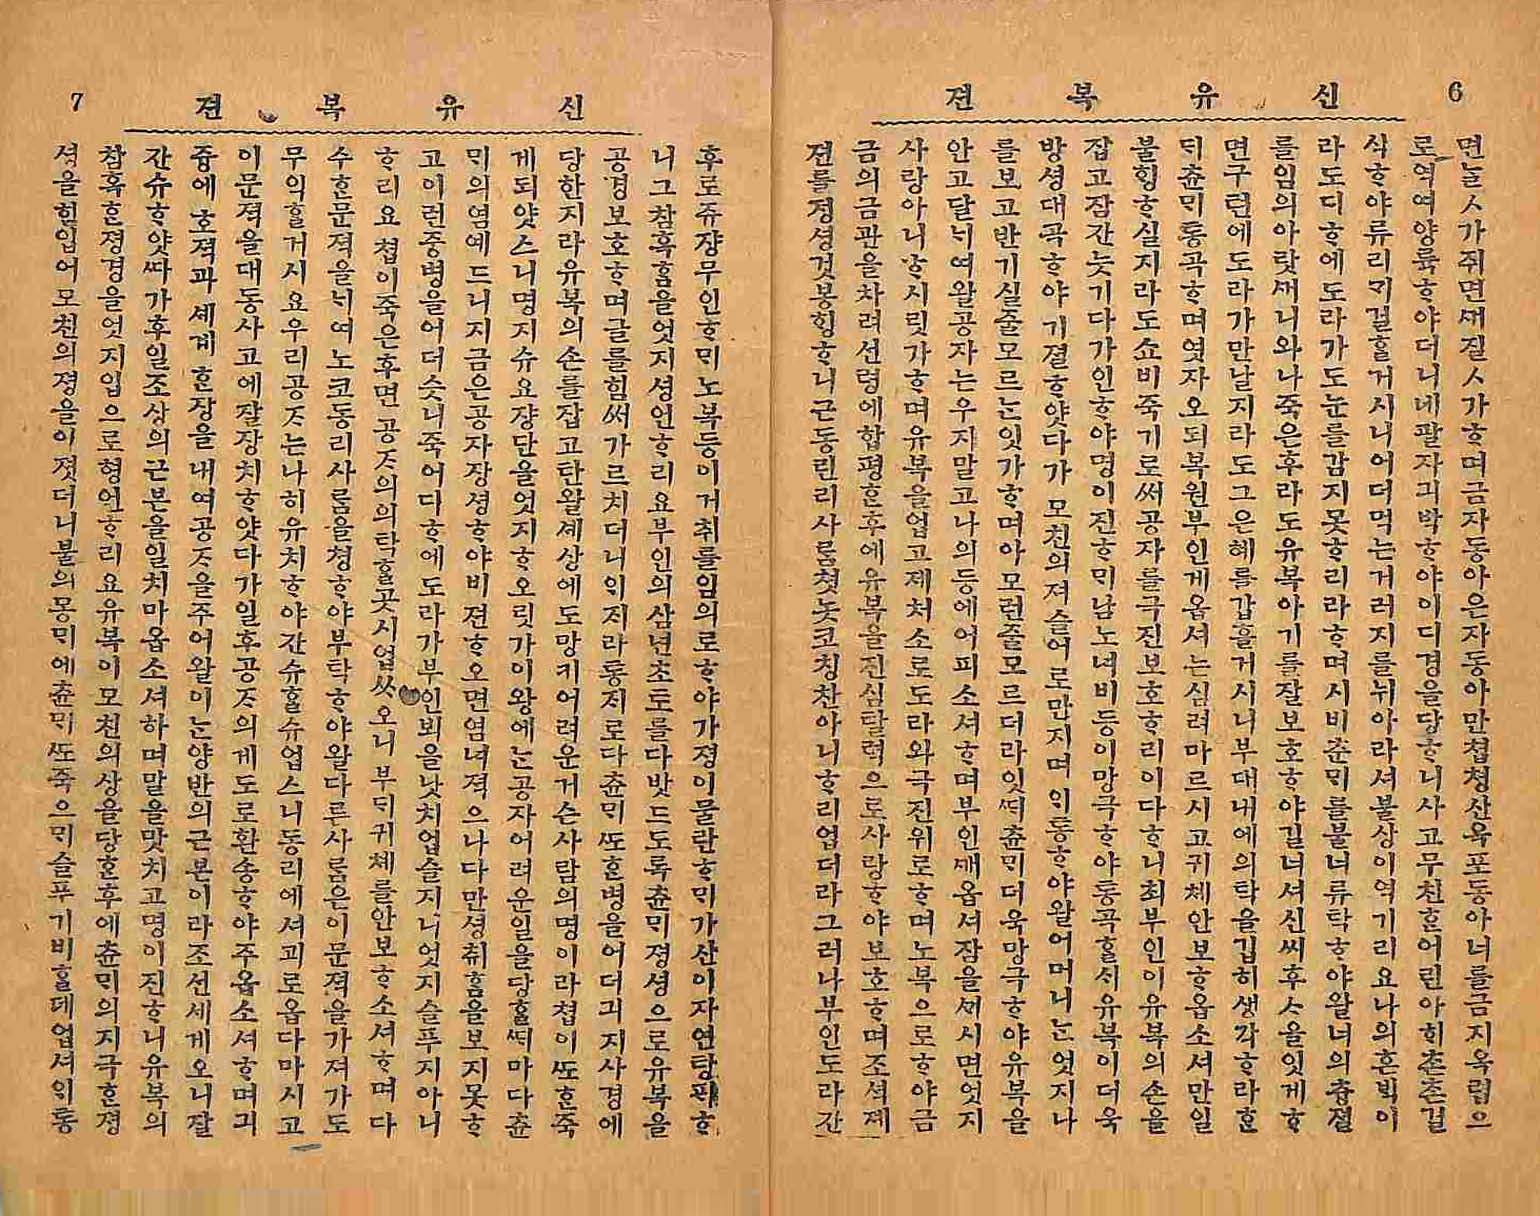 6 신유복젼
면눌ᄉᆞ가쥐면ᄭᆡ질ᄉᆞ가ᄒᆞ며금자동아은자동아만쳡쳥산옥포동아너를금지옥렵으
로역여양륙ᄒᆞ야더니네팔자긔박ᄒᆞ야이디경을당ᄒᆞ니사고무친ᄒᆞᆫ어린아ᄒᆡ촌촌걸
식ᄒᆞ야류리ᄀᆡ걸ᄒᆞᆯ거시니어더먹는거러지를뉘아라셔불상이역기리요나의혼ᄇᆡᆨ이
라도디ᄒᆞ에도라가도눈를감지못ᄒᆞ리라ᄒᆞ며시비츈ᄆᆡ를불너류탁ᄒᆞ야왈너의츙졀
를임의아랏ᄭᅢ니와나죽은후라도유복아기를잘보호ᄒᆞ야길너셔신씨후ᄉᆞ을잇게ᄒᆞ
면구런에도라가만날지라도그은혜를갑흘거시니부대내에의탁을깁히생각ᄒᆞ라ᄒᆞᆫ
ᄃᆡ츈ᄆᆡ통곡ᄒᆞ며엿자오되복원부인게옵셔는심려마르시고귀쳬안보ᄒᆞ옵소셔만일
불ᄒᆡᆼᄒᆞ실지라도쇼비죽기로써공자를극진보호ᄒᆞ리이다ᄒᆞ니최부인이유복의손을
잡고잠잔늣기다가인ᄒᆞ야명이진ᄒᆞᄆᆡ남노녀비등이망극ᄒᆞ야통곡ᄒᆞᆯᄉᆡ유복이더욱
방셩대곡ᄒᆞ야기졀ᄒᆞ얏다가모친의져슬어로만지며ᄋᆡ통ᄒᆞ야왈어머니ᄂᆞᆫ엇지나
를보고반기실줄모르ᄂᆞᆫ잇가ᄒᆞ며아모런줄모르더라잇ᄯᆡ츈ᄆᆡ더욱망극ᄒᆞ야유복을
안고달ᄂᆡ여왈공자는우지말고나의등에어피소셔ᄒᆞ며부인ᄭᅦ옵셔잠을ᄭᆡ시면엇지
사랑아니ᄒᆞ시릿가ᄒᆞ며유복을업고제처소로도라와극진위로ᄒᆞ며노복으로ᄒᆞ야금
금의금관을차려션령에합평ᄒᆞᆫ후에유복을진심탈력으로사랑ᄒᆞ야보호ᄒᆞ며조셕졔
젼를졍셩것봉ᄒᆡᆼᄒᆞ니근동린리사ᄅᆞᆷ쳣놋코칭찬아니ᄒᆞ리업더라그러나부인도라간
7 신유복젼
후로쥬쟝무인ᄒᆞᄆᆡ노복등이거취를임의로ᄒᆞ야가졍이물란ᄒᆞᄆᆡ가산이자연탕ᄑᆡᄒᆞ
니그참혹ᄒᆞᆷ을엇지셩언ᄒᆞ리요부인의삼년초토를다밧드도록츈ᄆᆡ졍셩으로유복을
공경보호ᄒᆞ며글를힘써가르치더니ᄋᆡᄌᆡ라통ᄌᆡ로다츈ᄆᆡᄯᅩᄒᆞᆫ병을어더긔지사경에
당한지라유복의손를잡고탄왈셰상에도망키어려운거슨사람의명이라쳡이ᄯᅩᄒᆞᆫ죽
게되얏스니명지슈요쟝단을엇지ᄒᆞ오릿가이왕에ᄂᆞᆫ공자어려운일을당ᄒᆞᆯᄯᆡ마다츈
ᄆᆡ의염예드니지금은공자장셩ᄒᆞ야비젼ᄒᆞ오면염녀젹으나다만셩취ᄒᆞᆷ을보지못ᄒᆞ
고이런즁병을어더슷니죽어디ᄒᆞ에도라가부인뵈을낫치업슬지니엇지슬푸지아니
ᄒᆞ리요쳡이죽은후면공ᄌᆞ의의탁ᄒᆞᆯ곳시업ᄊᆞ오니부ᄃᆡ귀쳬를안보ᄒᆞ소셔ᄒᆞ며다
수ᄒᆞᆫ문젹을ᄂᆡ여노코동리사ᄅᆞᆷ을쳥ᄒᆞ야부탁ᄒᆞ야왈다른사ᄅᆞᆷ은이문젹을가져가도
무익ᄒᆞᆯ거시요우리공ᄌᆞ는나히유치ᄒᆞ야간슈ᄒᆞᆯ슈업스니동리에셔괴로옵다마시고
이문젹을대동사고에잘장치ᄒᆞ얏다가일후공ᄌᆞ의게도로환송ᄒᆞ야주옵소셔ᄒᆞ며긔
즁에호젹과셰계ᄒᆞᆫ장을내여공ᄌᆞ을주어왈이ᄂᆞᆫ양반의근본이라조션셰계오니잘
간슈ᄒᆞ얏ᄯᅡ가후일조상의근본을일치마옵소셔하며말을맛치고명이진ᄒᆞ니유복의
참혹ᄒᆞᆫ졍경을엇지입으로형언ᄒᆞ리요유복이모친의상을당ᄒᆞᆫ후에츈ᄆᆡ의지극ᄒᆞᆫ졍
셩을힘입어모친의졍을이졋더니불의몽ᄆᆡ에츈ᄆᆡᄯᅩ죽으ᄆᆡ슬푸기비ᄒᆞᆯ데업셔ᄋᆡ통